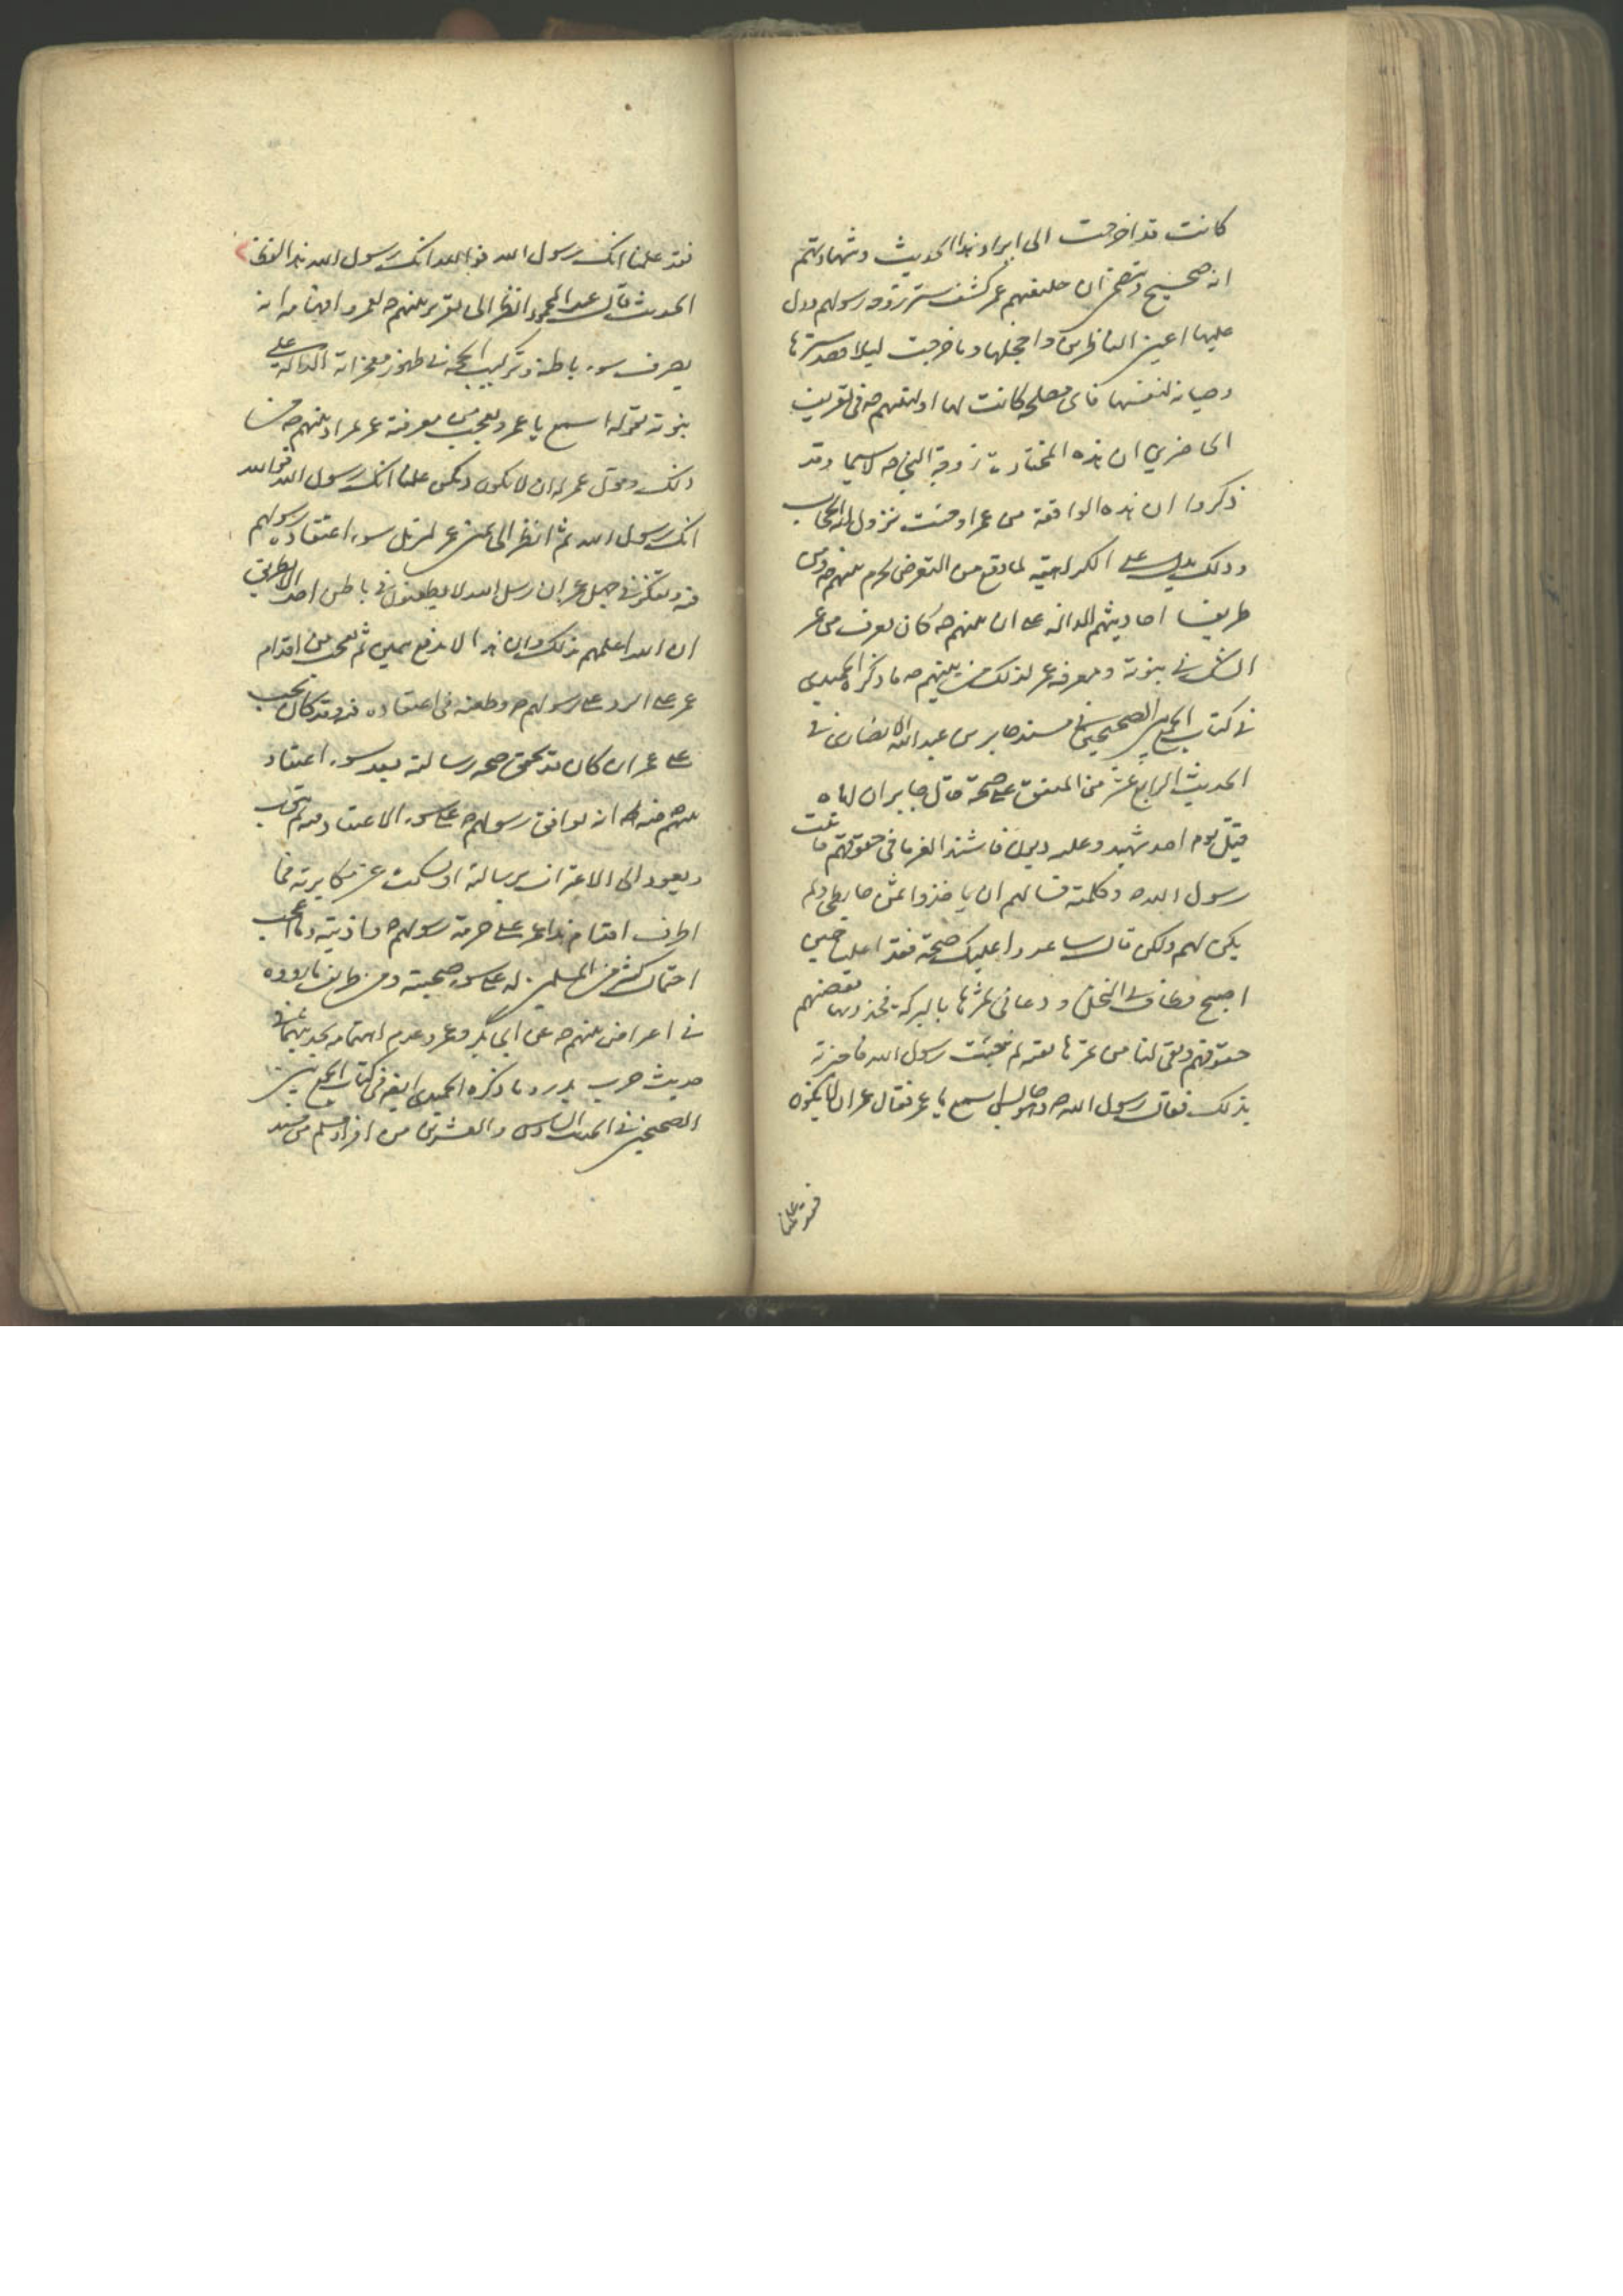 كانت قد اخرجت الى ايراد هذا الحديث وشهادتهم
انه صحيح وتضمن ان خليفتهم عمر كشف ستر زوجة رسولهم ودل
عليها اعين الناظرين واخجلها وما خرجت ليلا الا قصد سترها
وصيانة لنفسها فاى مصلحة كانت لها او لنبيهم ص فى تعريف
الحاضرين ان هذه المختارة زوجة النبى ص لا سيما وقد
ذكروا ان هذه الواقعة من عمر اوجبت نزول اية الحجاب
وذلك يدل على الكراهية لما يقع من التعرض لحرم نبيهم ص ومن
طريف احاديثهم الدالة على ان نبيهم ص كان يعرف من عمر
الشك فى نبوته ومعرفة عمر لذلك من نبيهم ص ما ذكره الحميدى
فى كتاب الجمع بين الصحيحين فى مسند جابر بن عبد الله الانصارى فى
الحديث الرابع عشر من المتفق على صحته قال جابر ان اباه
قتل يوم احد شهيد وعليه دين فاشتد الغرما فى حقوقهم فاتيت
رسول الله ص وكلمته فسالهم ان ياخذوا ثمر حايطى ولم
يكن لهم ولكن قال ساغدوا عليك صحة فغدا علينا حين
اصبح وطاف فى النخل ودعا فى ثمرها بالبركة فجذذتها فقضيتهم
حقوقهم وبقى لنا من ثمرها بقية ثم جئت رسول الله فاخبرته
بذلك فقال رسول الله ص وهو جالس اسمع يا عمر فقال عمر ان لا يكون
فقد علمنا
فقد علمنا انك رسول الله فو الله انك رسول الله هذا لفظ
الحديث قال عبد المحمود انظر الى تقرير نبيهم ص لعمر وافهامه انه
يعرف سوء باطنه وتركيب الحجة فى ظهور معجزاته الدالة على
نبوته بقوله اسمع يا عمر وتعجب من معرفة عمر لمراد نبيهم ص من
ذلك وقول عمر له ان لا يكون نكون علمنا انك رسول الله فو الله
انك رسول الله ثم انظر الى يمين عمر لتزيل سوء اعتقاد رسولهم
فيه وتفكر فى جهل عمر بان رسل الله لا يطلعون فى باطن احد الا بطريق
ان الله اعلمهم بذلك وان هذا لا يدفع بيمين ثم تعجب من اقدام
عمر على الرد على رسولهم ص وطعنه فى اعتقاده فيه وقد كان يجب
على عمر ان كان قد تحقق صحة رسالته بعد سوء اعتقاد
نبيهم ص فيه انه يوافق رسولهم ص على سوء الاعتقاد فيه ثم يتوب
ويعود الى الاعتراف برسالته او يسكت عن مكابرته فما
اطرف اقدام هذا عمر على حرمة رسولهم ص واذيته وما اعجب
احتمال كثير من المسلمين له على سوء صحبته ومن طرايف ما رووه
فى اعراض نبيهم ص على ابى بكر وعمر وعدم اهتمامه بحديثهما فى
حديث حرب بدر وما ذكره الحميدى ايضا فى كتاب الجمع بين
الصحيحين فى الحديث السادس والعشرين من افراد مسلم من مسند